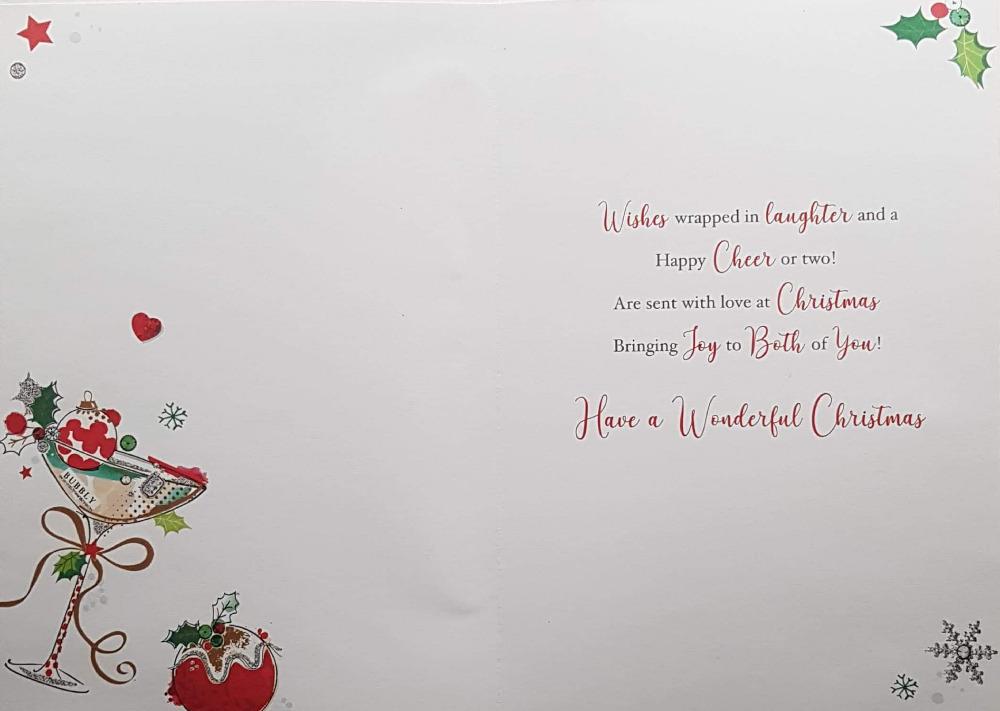 BUBBLY
Wishes wrapped in laughter and a
Happy Cheer or two!
Are sent with love at Christmas
Bringing Joy to Both of You!
Have a Wonderful Christmas